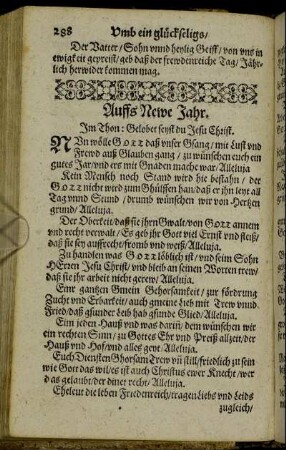 288 Vmb ein glückseligs/
Der Vatter/Sohn vnnd heylig Geist/von vns in
ewigkeit gepreist/geb daß der frewdenreiche Tag/Jähr-
lich herwider kommen mag.
Auffs Newe Jahr.
Im Thon: Gelobet seyst du Jesu Christ.
NVn wölle GOTT daß vnser Gsang/mit Lust vnd
Frewd auß Glauben gang/zu wünschen euch ein
gutes Jar/vnd ers mit Gnaden mache war/Alleluja
Kein Mensch noch Stand wird hie bestahn/der
GOTT nicht wird zum Ghülffen han/daß er jhn leyt all
Tag vnnd Stund/drumb wünschen wir von Hertzen
grund/Alleluja.
Der Oberkeit/daß sie jhrn Gwalt/von GOTT annem
vnd recht verwalt/Es geb jhr Gott viel Ernst vnd fleiß/
daß sie sey auffrecht/fromb vnd weiß/Alleluja.
Zu handlen was GOTT löblich ist/vnd sein Sohn
HErren Jesu Christ/vnd bleib an seinen Worten trew/
daß sie jhr arbeit nicht gerew/Alleluja.
Eine gantzen Gmein Gehorsamkeit/zur fördrung
Zucht vnd Erbarkeit/auch gmeine Lieb mit Trew vnnd
Fried/daß gsunder Leib hab gsunde Glied/Alleluja.
Eim jeden Hauß vnd was darin/dem wünschen wir
ein rechten Sinn/zu Gottes Ehr vnd Preiß allzeit/der
Hauß vnd Hof/vnd alles geyt/Alleluja.
Euch Diensten Ghorsam Trew vñ still/friedlich zu sein
wie Gott das wil/es ist auch Christus ewer Knecht/wer
das gelaubt/der diner recht/Alleluja.
Eheleut die leben Friedenreich/tragen Liebs vnd Leids
zugleich/